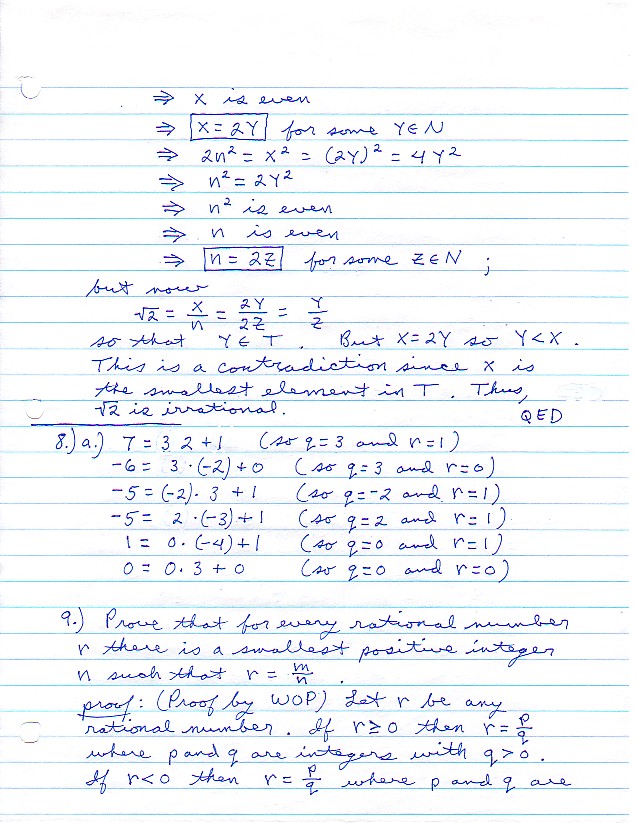 ⇒ x is even
⇒ x = 2Y for some Y ∈ N
⇒ 2n² = x² = (2Y)² = 4Y²
⇒ n² = 2Y²
⇒ n² is even
⇒ n is even
⇒ n = 2Z for some Z ∈ N ;
but now
√2 = x/n = 2Y/2Z = Y/Z
so that Y ∈ T . But x = 2Y so Y < x .
This is a contradiction since x is
the smallest element in T . Thus,
√2 is irrational.
QED
8.) a.) 7 = 3 2 + 1 (so q = 3 and r = 1)
-6 = 3 · (-2) + 0 (so q = 3 and r = 0)
-5 = (-2) · 3 + 1 (so q = -2 and r = 1)
-5 = 2 · (-3) + 1 (so q = 2 and r = 1)
1 = 0 · (-4) + 1 (so q = 0 and r = 1)
0 = 0 · 3 + 0 (so q = 0 and r = 0)
9.) Prove that for every rational number
r there is a smallest positive integer
n such that r = m/n .
proof : (Proof by WOP) Let r be any
rational number . If r ≥ 0 then r = p/q
where p and q are integers with q > 0 .
If r < 0 then r = p/q where p and q are